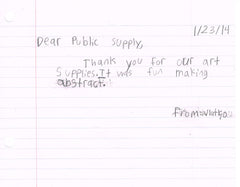 1/23/14
Dear Public supply,
Thank you for our art
Supplies. It was fun making
abstract.
from: